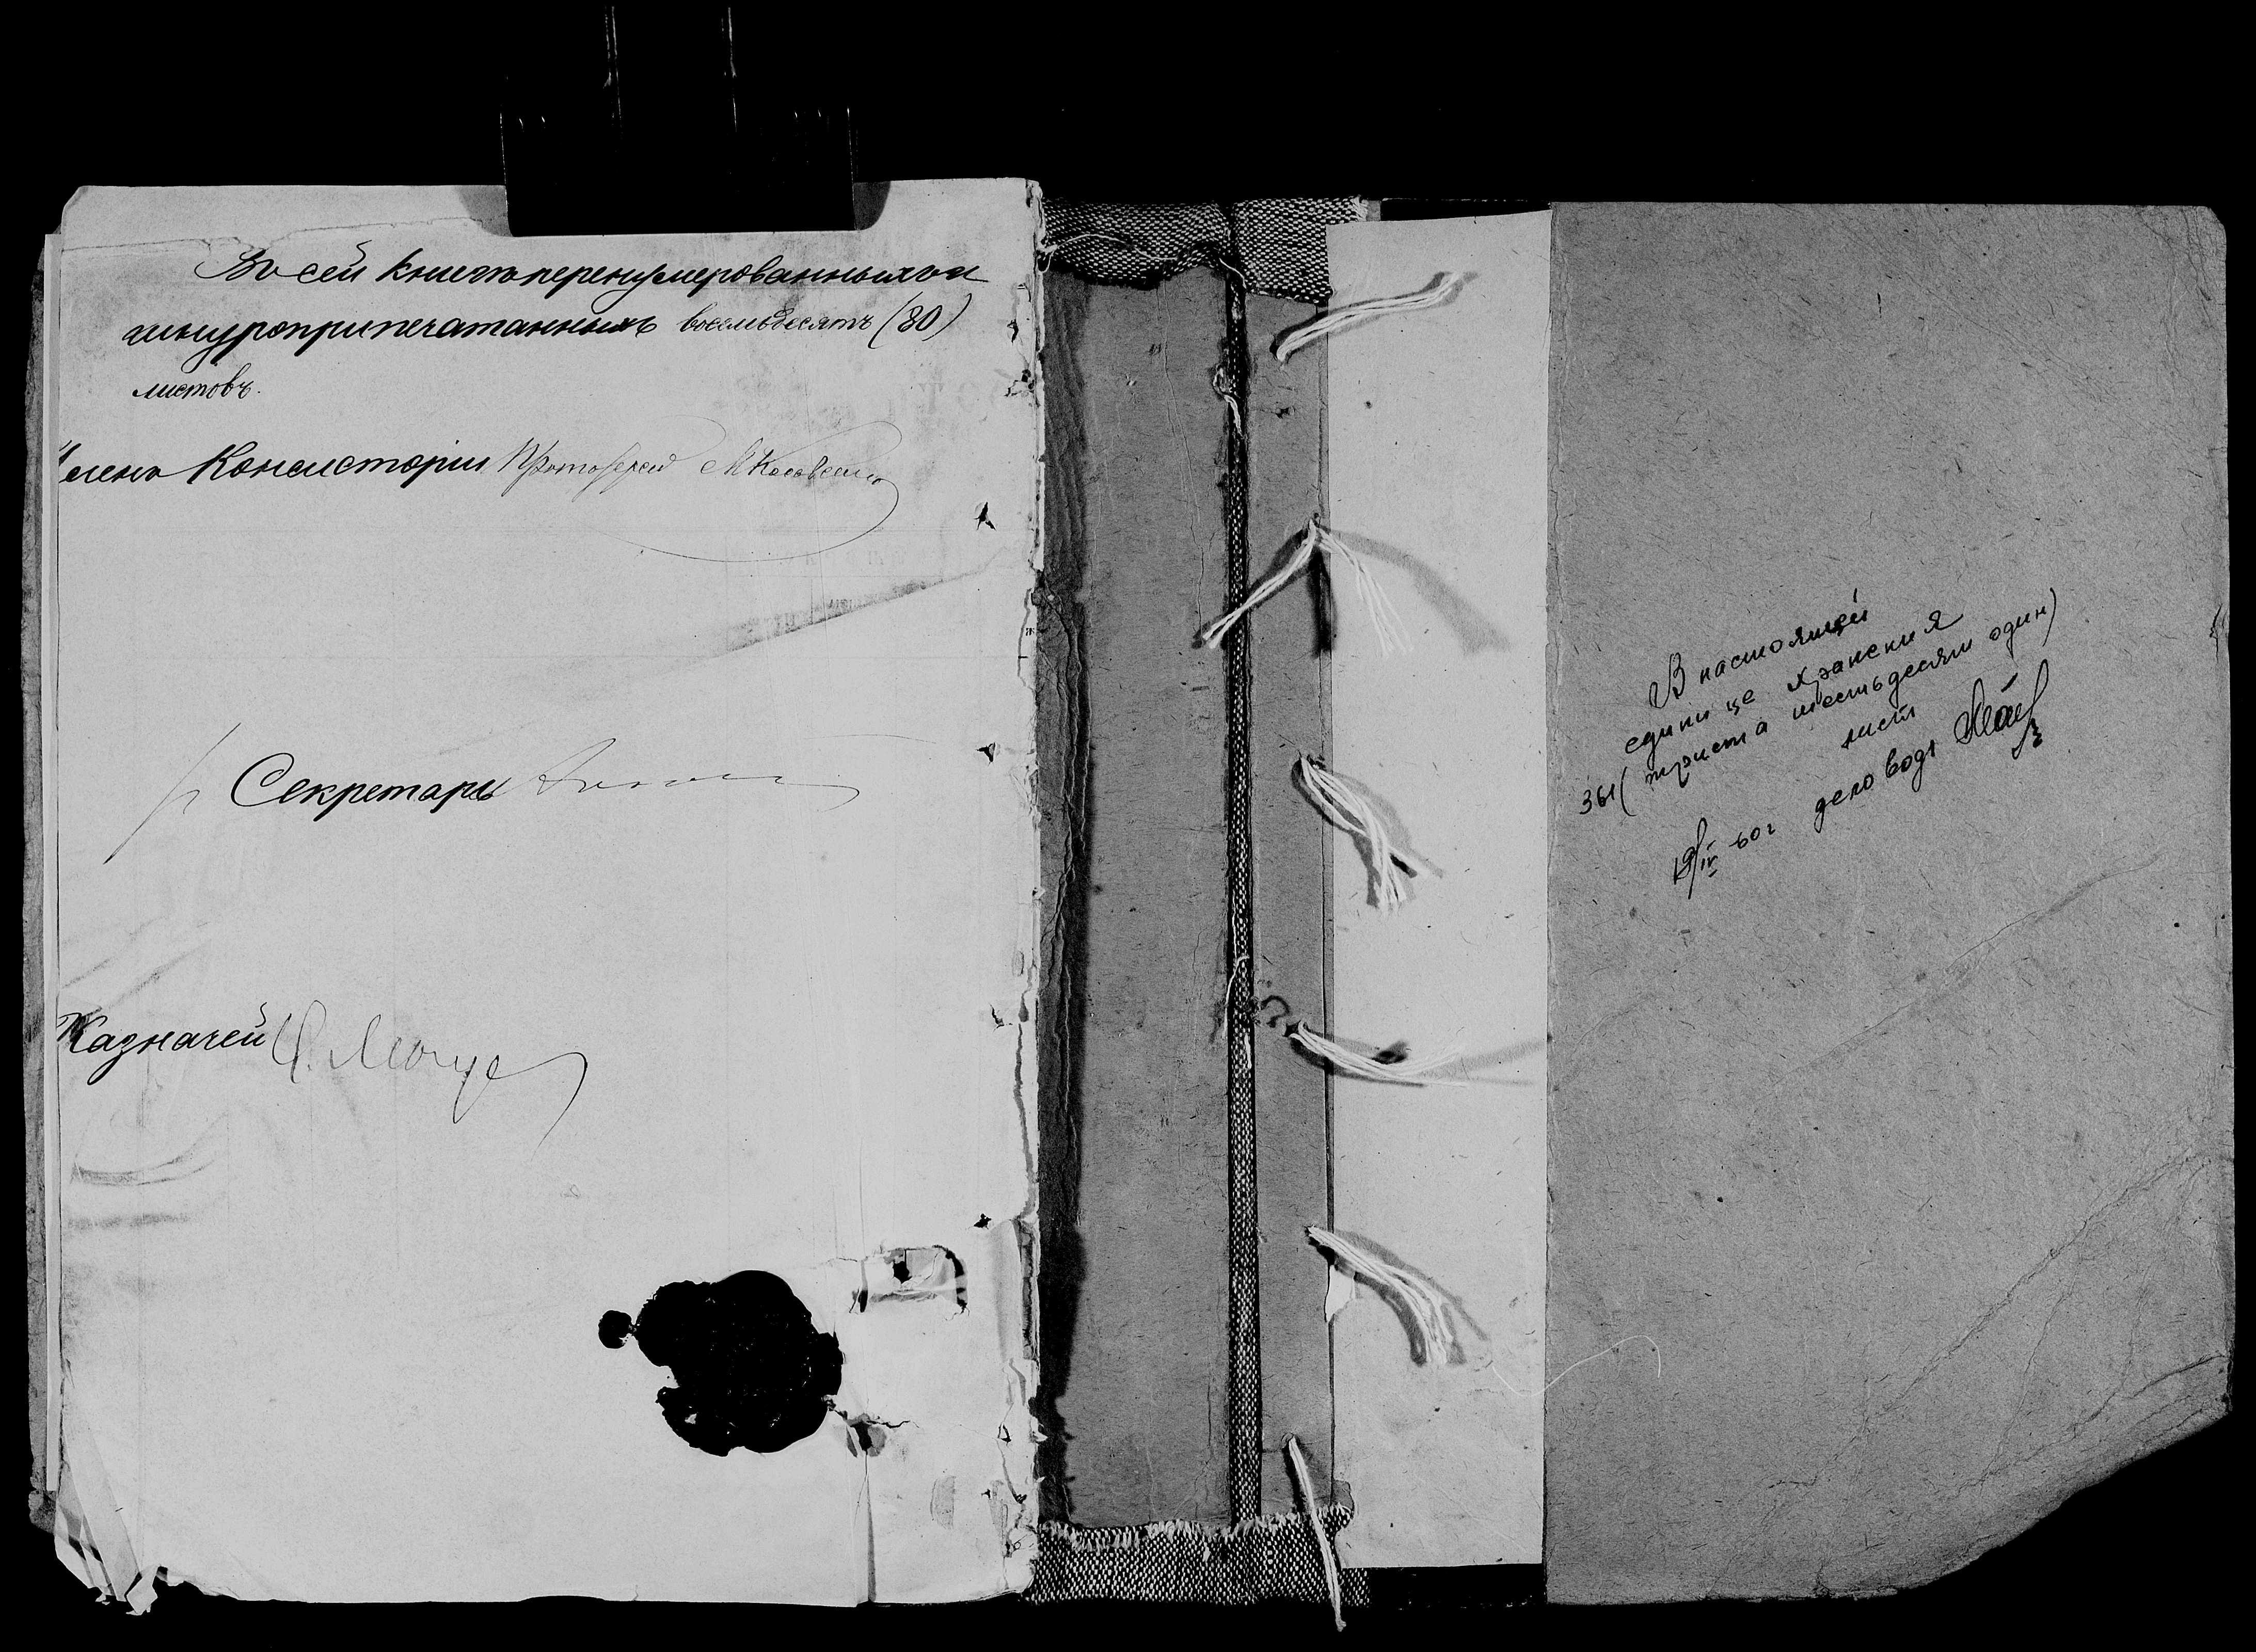 Въ сей книгѣ перенумерованныхъ и
шнуроприпечатанныхъ восемьдесятъ (80)
листовъ.
Членъ Консисторіи Протоіерей
Секретарь
Казначей
В настоящей
единице хранения
361 (триста шестьдесят один)
лист
19/IV 60 г деловод